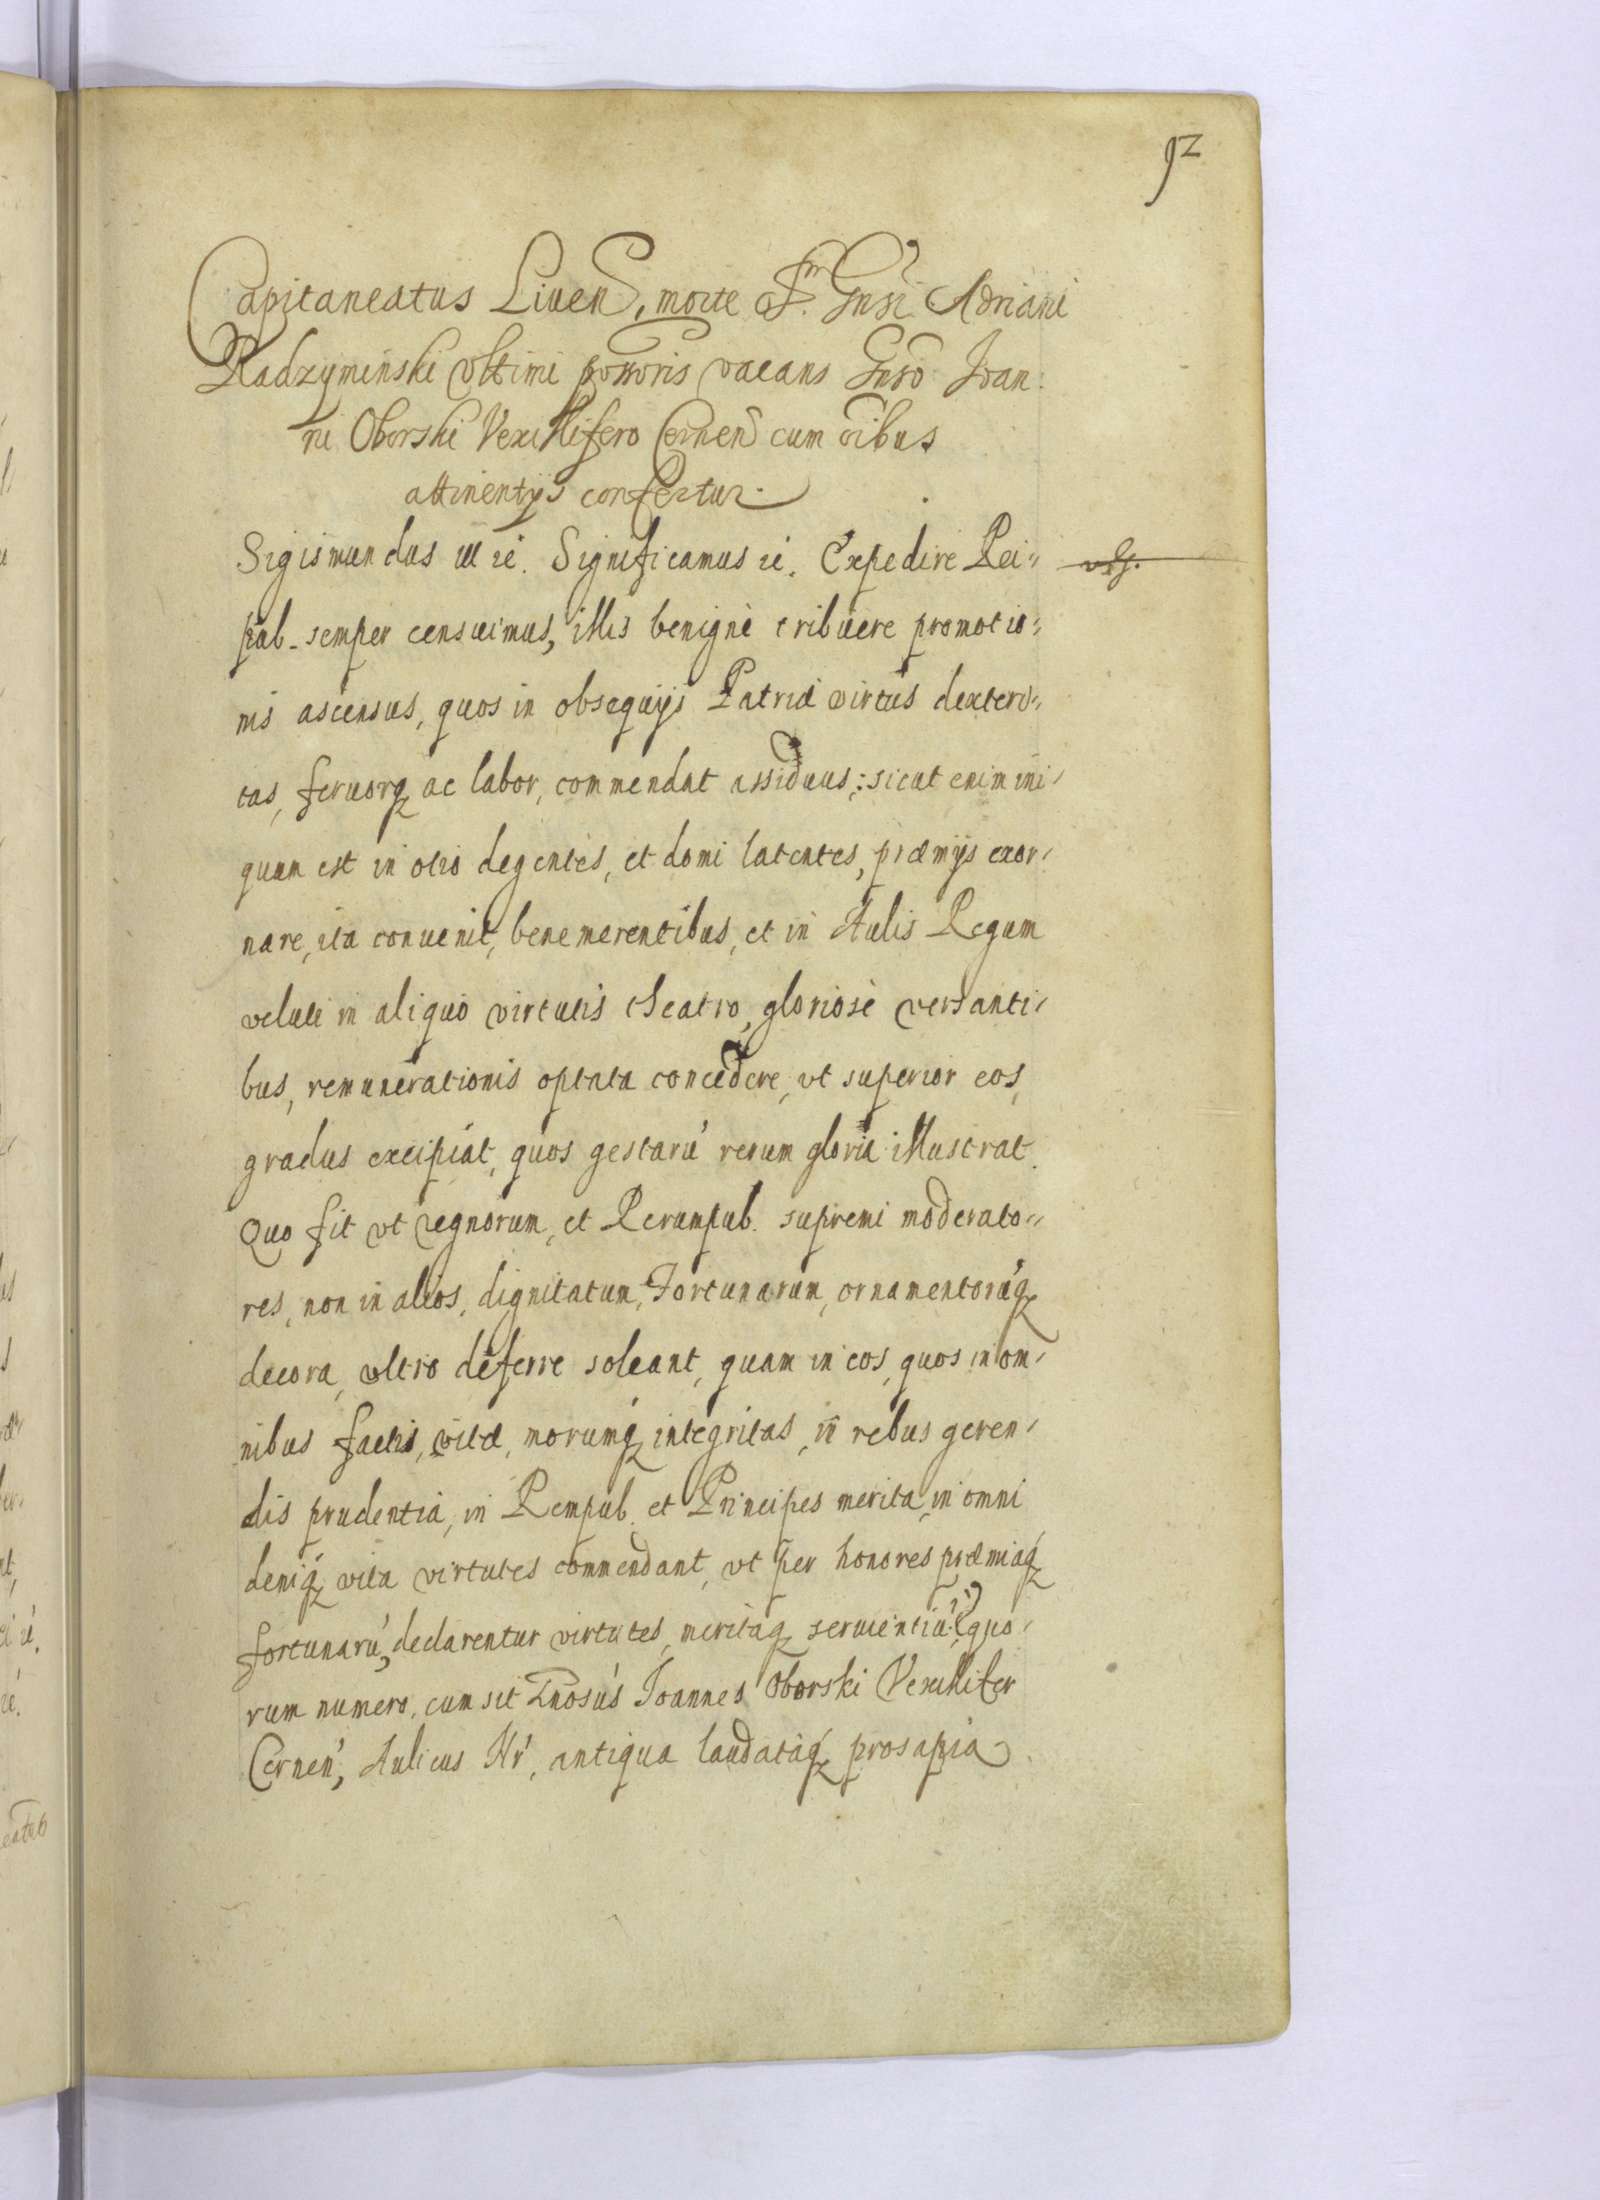 92
Capitaneatus Liuen̄, morte Gnsi Adriani
Radzyminski vltimi possoris vacans Gnso Ioan:
ni Oborski Vexillifero Cernen̄ cum oībus
attinentijs confertur.
Sigismundus III rė. Significamus rė. Expedire Rei=
pub. semper censuimus, illis benignè tribuere promotio=
nis ascensus, quos in obsequijs Patriæ virtus dexteri=
tas, feruorq; ac labor, commendat assiduus; sicut enim ini=
quum est in otio degentes, et domi latentes, præmijs exor=
nare, ita conuenit, benemerentibus, et in Aulis Regum
veluti in aliquo virtutis theatro, gloriosè versanti=
bus, remunerationis optata concedere, vt superior eos,
gradus excipiat, quos gestarū rerum gloria illustrat.
Quo fit vt regnorum, et Rerumpub. supremi moderato=
res, non in alios, dignitatum, Fortunarum, ornamentorūq;
decora, vltro deferre soleant, quam in eos, quos in om=
nibus factis, vitæ, morumq; integritas, in rebus geren=
dis prudentia, in Rempub. et Principes merita, in omni
deniq; vita virtutes commendant, vt per honores præmiaq;
fortunarū, declarentur virtutes, meritaq; seruientiū: quo=
rum numero, cum sit Gnosus Ioannes Oborski Vexillifer
Cernen̄, Aulicus Nr̄, antiqua laudataq; prosapia